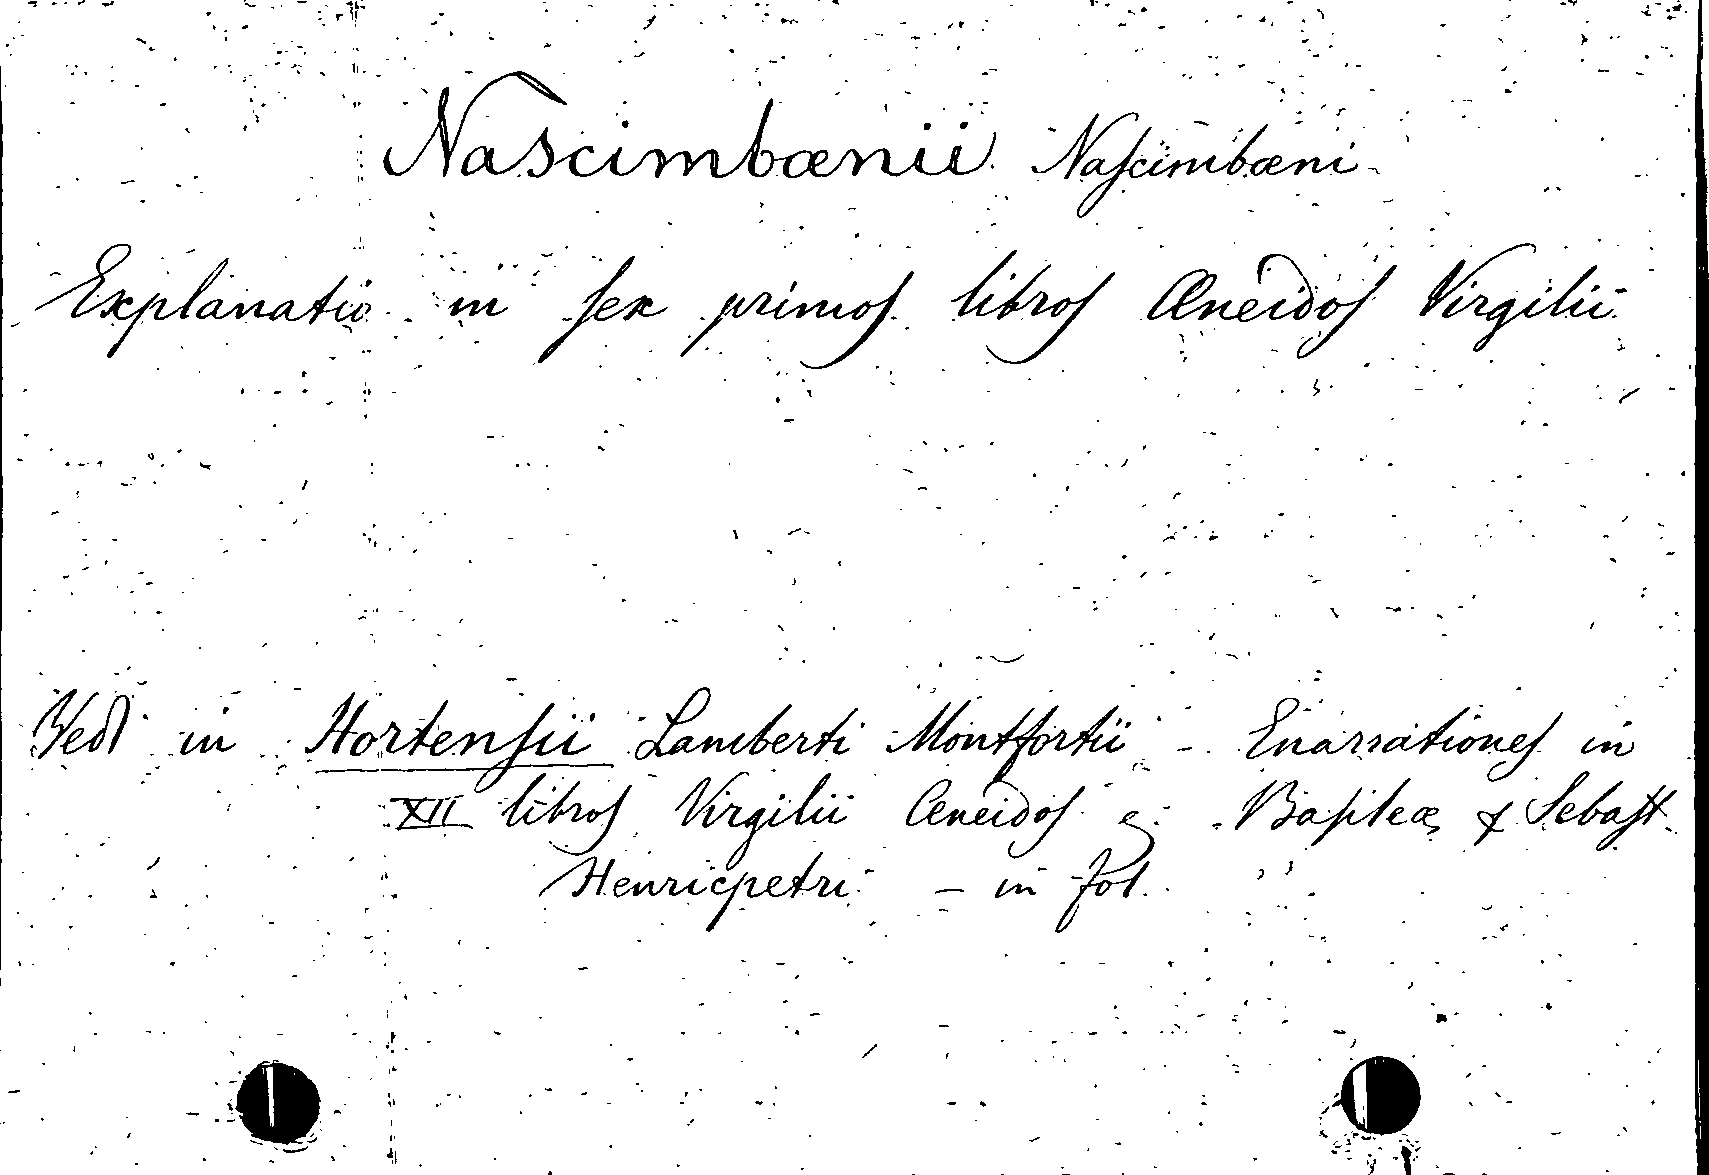 Nascimbænii Naſcimbæni
Explanatio in ſex primoſ libroſ Æneidoſ Virgilii
Vedi in Hortenſii Lamberti Montfortii - Enarrationeſ in
XII libroſ Virgilii Æneidoſ Baſileæ Sebaſt.
Henricpetri - in fol.